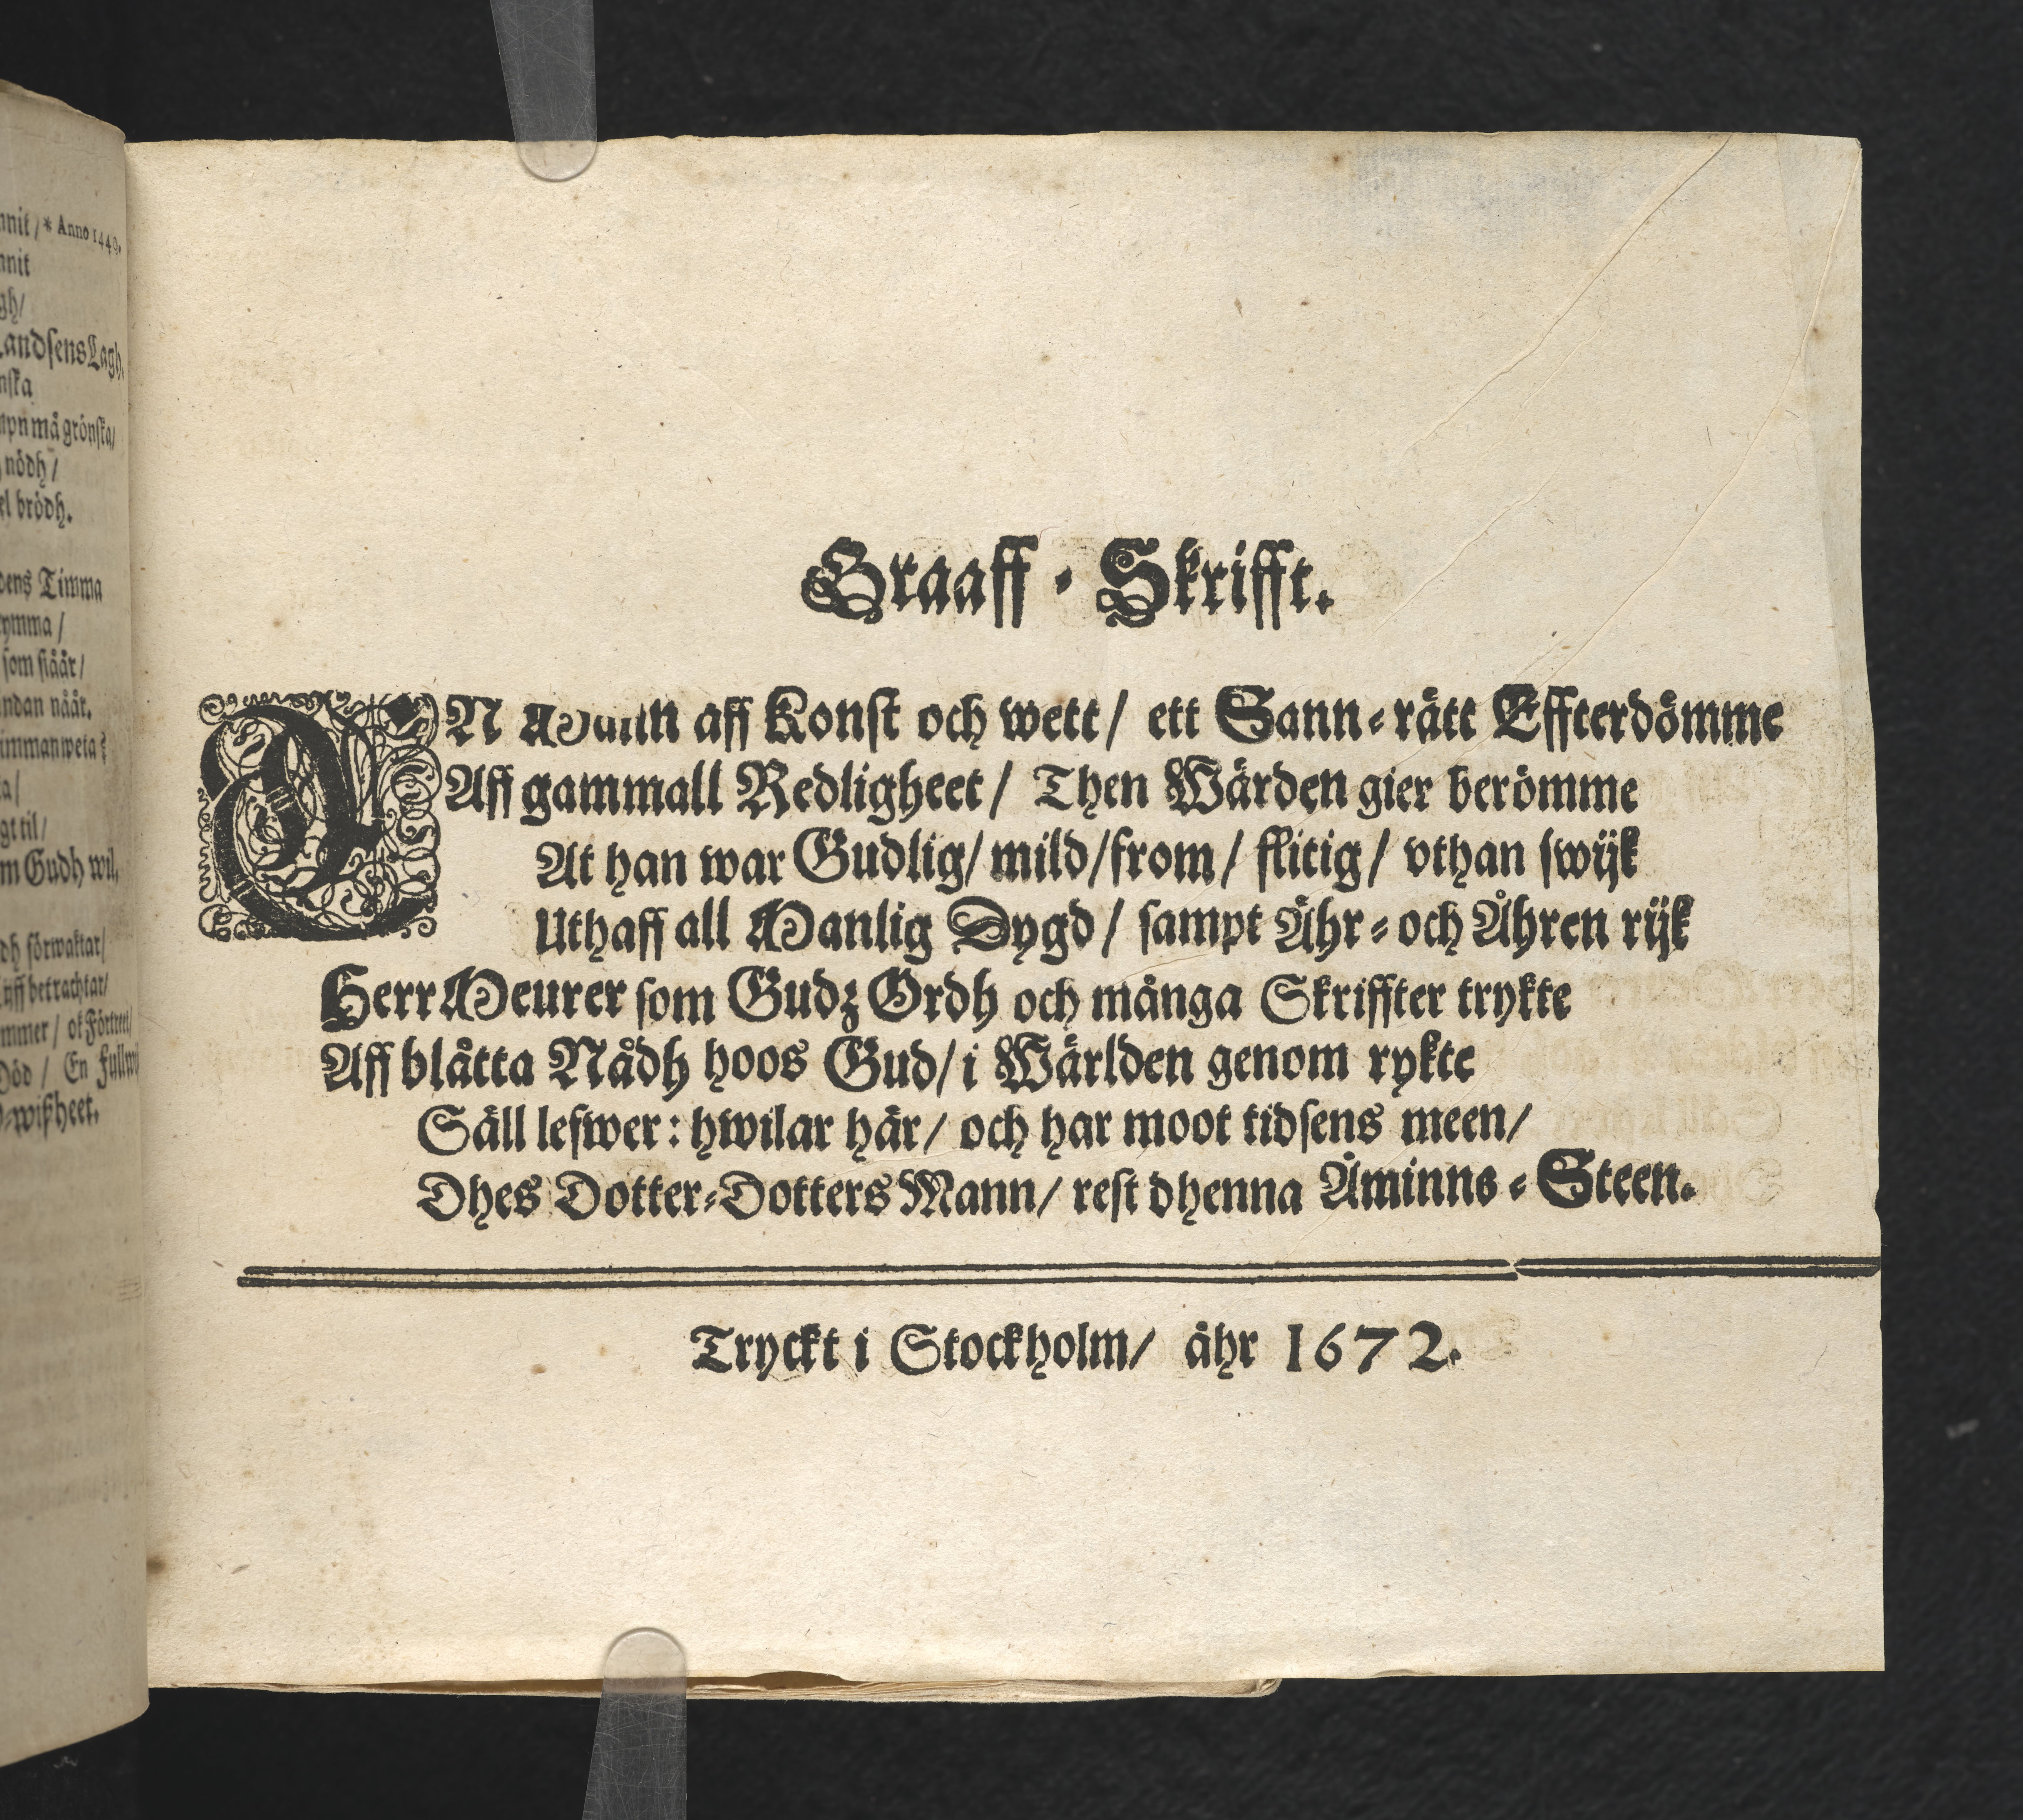 nnit / * Anno 1440.
nnit
gh/
Landsens Lagh.
nſka
mpn må grönſka/
nödh /
el brödh.
dens Timma
rymma /
ſom ſtåår/
ndan nåår.
imman weta?
a/
gt til/
m Gudh wil.
dh förwaktar/
lijff betrachtar/
mmer / ok Förtreet/
Död / En
wißheet.
Graaff - Skrifft.
EN Mann aff Konſt och wett / ett Sann-rätt Effterdömme
Aff gammall Redligheet / Then Wärden gier berömme
At han war Gudlig / mild / from / flitig / vthan ſwijk
Uthaff all Manlig Dygd / ſampt Ähr- och Åhren rijk
Herr Meurer ſom Gudz Ordh och många Skriffter trykte
Aff blåtta Nådh hoos Gud / i Wärlden genom rykte
Säll lefwer: hwilar här / och har moot tidſens meen /
Dhes Dotter-Dotters Mann / reſt dhenna Åminns-Steen.
Tryckt i Stockholm / åhr 1672.